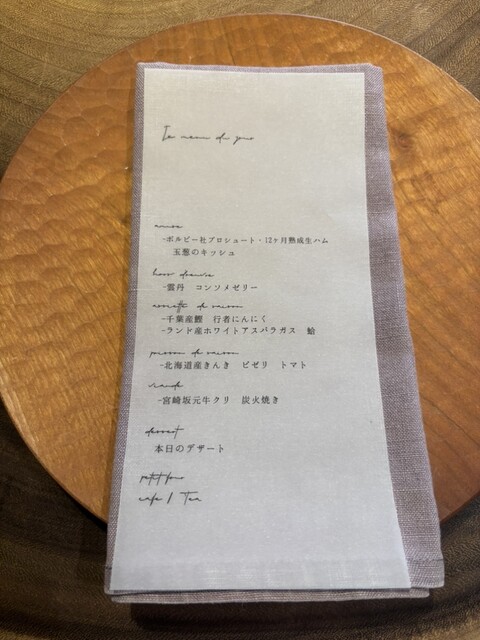 Le menu du jour
amuse
-ボルピー社プロシュート・12ヶ月熟成生ハム
玉葱のキッシュ
hors d'oeuvre
-雲丹　コンソメゼリー
assiette de saison
-千葉産鰹　行者にんにく
-ランド産ホワイトアスパラガス　蛤
poisson de saison
-北海道産きんき　ピゼリ　トマト
viande
-宮崎坂元牛クリ　炭火焼き
dessert
本日のデザート
petit four
cafe / Tea